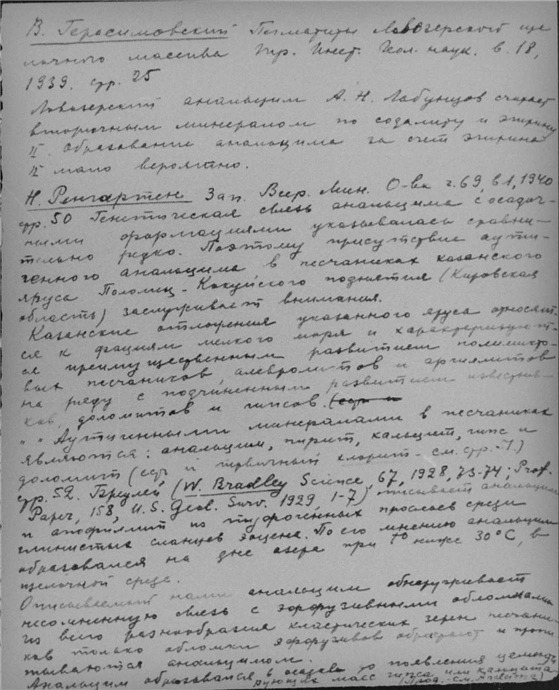 В. Герасимовский Пегматиты Ловозерского ще-
лочного массива Тр. Инст. Геол. наук. в. 18,
1939. стр. 25
Ловозерский анальцим А. Н. Лабунцов считает
вторичным минералом по содалиту и эгирину
II. Образование анальцима за счет эгирина
II мало вероятно.
Н. Ренгартен Зап. Всер. Мин. О-ва ч. 69, в 1, 1940
стр. 50 Генетическая связь анальцима с осадоч-
ными формациями указывалась сравни-
тельно редко. Поэтому присутствие аути-
генного анальцима в песчаниках казанского
яруса Полом-Кокуйского поднятия (Кировская
область) заслуживает внимания.
Казанские отложения указанного яруса относят-
ся к фациям мелкого моря и характеризуют-
ся преимущественным развитием полимикто-
вых песчаников алевролитов и аргиллитов
на ряду с подчиненным развитием известня-
ков, доломитов и гипсов.
" " Аутигенными минералами в песчаниках
являются: анальцим, пирит, кальцит, гипс и
доломит ( и первичный хлорит - см. стр.
стр. 52. Брэдлей (W. Bradley Science, 67, 1928, 73-74; Prof.
Paper, 158, U.S. Geol. Surv. 1929 1-7) описывает анальцим
и апофиллит из прослоев среди
глинистых сланцев эоцена. По его мнению анальцим
образовался на дне озера при t° ниже 30°C, в
щелочной среде.
Описываемый нами анальцим обнаруживает
несомненную связь с эффузивными обломками
из всего разнообразия кластических зерен песчани-
ков только обломки эффузивов обрастают и пропи-
тываются анальцимом.
Анальцим образовался в осадке до появления цементи-
рующих масс гипса или кальцита